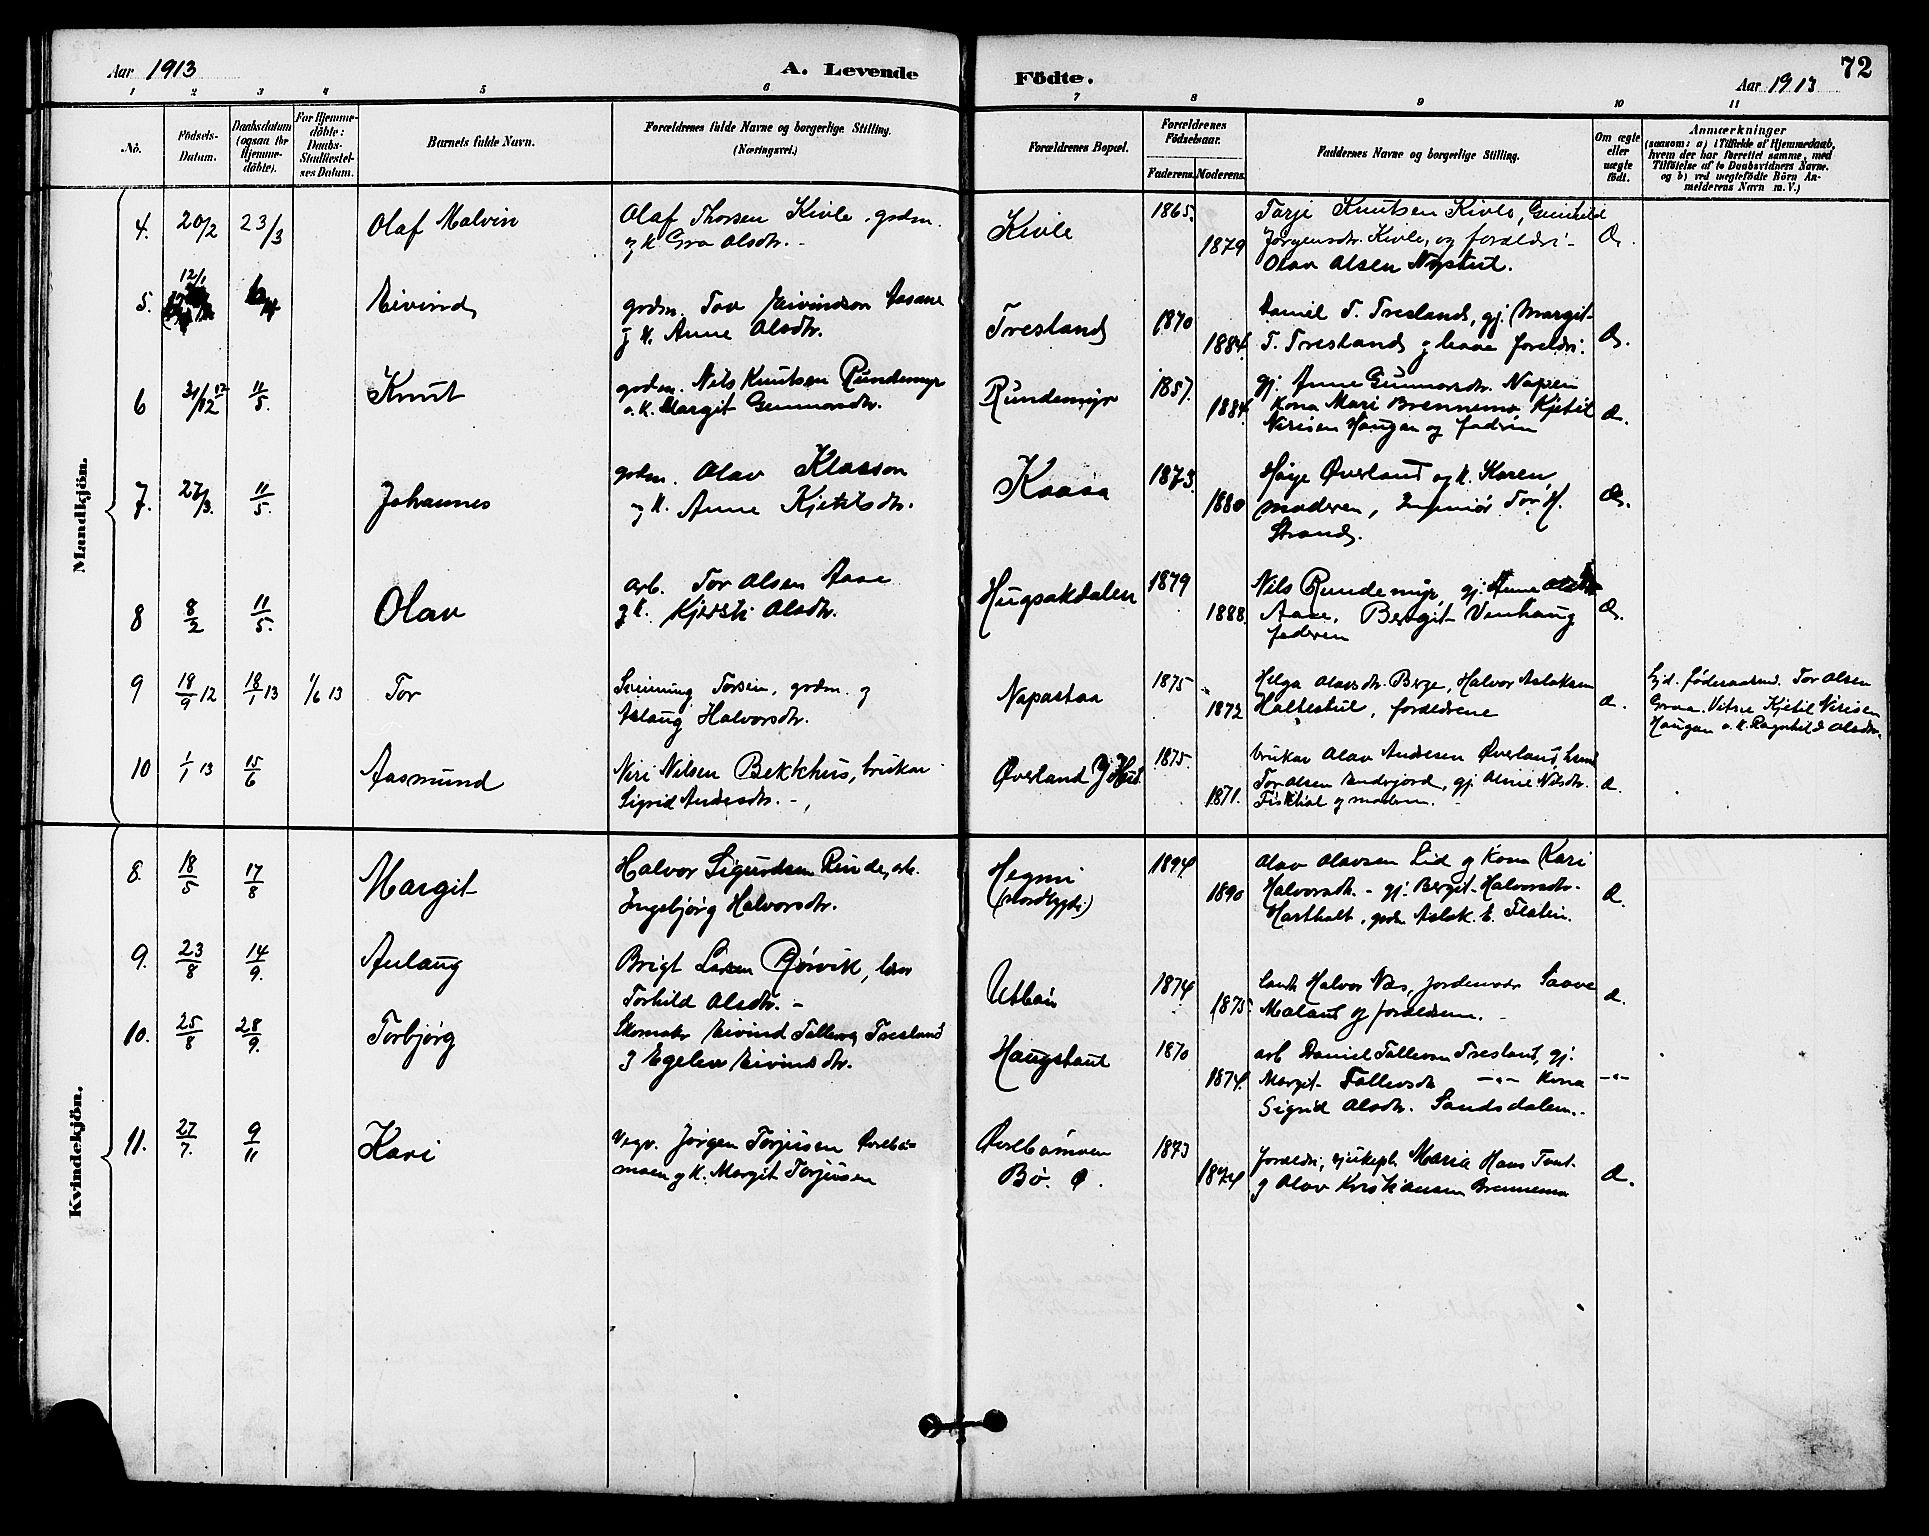 Aar 1913
A. Levende Födte.
Aar 1913
72
1 2 3 4 5 6 7 8 9 10 11
No.
Födsels-
Datum.
Daabsdatum
(ogsaa for
Hjemme-
döbte).
For Hjemme-
döbte:
Daabs-
Stadfæstel-
ses Datum.
Barnets fulde Navn.
Forældrenes fulde Navne og borgerlige Stilling.
(Næringsvei.)
Forældrenes Bopæl.
Forældrenes
Födselsaar.
Faderens. Moderens.
Faddernes Navne og borgerlige Stilling.
Om ægte
eller
uægte
födt.
Anmærkninger
(saasom: a) i Tilfælde af Hjemmedaab,
hvem der har forrettet samme, med
Tilföielse af to Daabsvidners Navne.
og b) ved uægtefödte Börn An-
melderens Navn m. V.)
Mandkjön.
4. 20/2 23/3 Olaf Malvin
Olaf Thorsen Kivle, grdm.
og k. Gro Olsdtr. -
Kivle 1865. 1879
Tarje Knutsen Kivle, Gunhild
Jørgensdtr. Kivle, og forældri-
Olav Olsen Nystul.
Æ.
5. 12/1 Eivind
grdm. Tov Eivindson Aasane
g k. Anne Olsdtr.
Tresland 1870 1884.
Daniel T. Tresland, gj. Margit
T. Tresland g baae foreldri.
Æ.
6 31/12 12 11/5. Knut
grdm. Nils Knutsen Rundemyr
o. k. Margit Gunnarsdtr.
Rundemyr 1857. 1884.
gj. Anne Gunnarsdtr. Napien
Kona Mari Brennemo. Kjetil
Nirisen Haugan og fadrin
Æ.
7. 27/3. 11/5. Johannes
grdm. Olav Klasson
og k. Anne Kjetilsdtr.
Kaasa 1873. 1880
Høye Øverland og k. Karen,
moderen, Ingeniør Tor H.
Strand.
Æ.
8 8/2 11/5. Olav
arb. Tor Olsen Aase
g k. Kjersti Olsdtr.
Hugsakdalen 1879 1888.
Nils Rundemyr, gj. Anne
Aase, Bergit Venhaug
faderen
Æ.
9 18/9 12 18/1 13 1/6 13 Tor
Torsen, grdm. g
Aslaug Halvorsdtr.
Napastaa 1875 1872
Helga Olavsdtr. Berge, Halvor Aslaksen
Haltestul, forældrene
Æ.
Tor Olsen
Graa. Vitne Kjetil Nirisen
Haugan o. k. Ragnhild Olsdtr.
10 1/1 13 15/6 Aasmund
Niri Nilsen Bekkhus, brukar
Sigrid Andersdtr. -,
Øverland 1875. 1871.
brukar Olav Andersen Øverland,
Tor Olsen gj. Nilsdtr.
g moderen.
Æ.
Kvindekjön.
8. 18/5 17/8 Margit
Halvor Sigurdsen Rinde, arb.
Ingebjørg Halvorsdtr.
Hegni
(Nordbygdi) 1894 1890
Olav Olavsen Lid g Kona Kari
Halvorsdtr. - gj. Bergit Halvorsdtr.
Hartholt, grdm Aslak E. Flatin.
Æ.
9. 23/8 14/9. Aulaug
Brigt Larsen Rørvik,
Torhild Olsdtr. -
Utbøn 1874 1875.
Halvor Næs, Jordemor Saave
Malant og forældrene. -
Æ.
10. 25/8 28/9. Torbjørg
Skomaker Eivind Tallevs. Tresland
g Egelev Eivindsdtr.
Haugstaul 1870 1874.
arb Daniel Tallevsen Tresland, gj.
Margit Tallevsdtr -"- Kona
Sigrid Olsdtr. Sandsdalen.
-"-
11. 27/7. 9/11 Kari
Vegv. Jørgen Torjusen
moen g k. Margit Torjusen
Bø. Ø. 1873 1874
Foreldri, sjukepl. Marie Hans Tveit.
g Olav Kristiansen Brennemo
Æ.